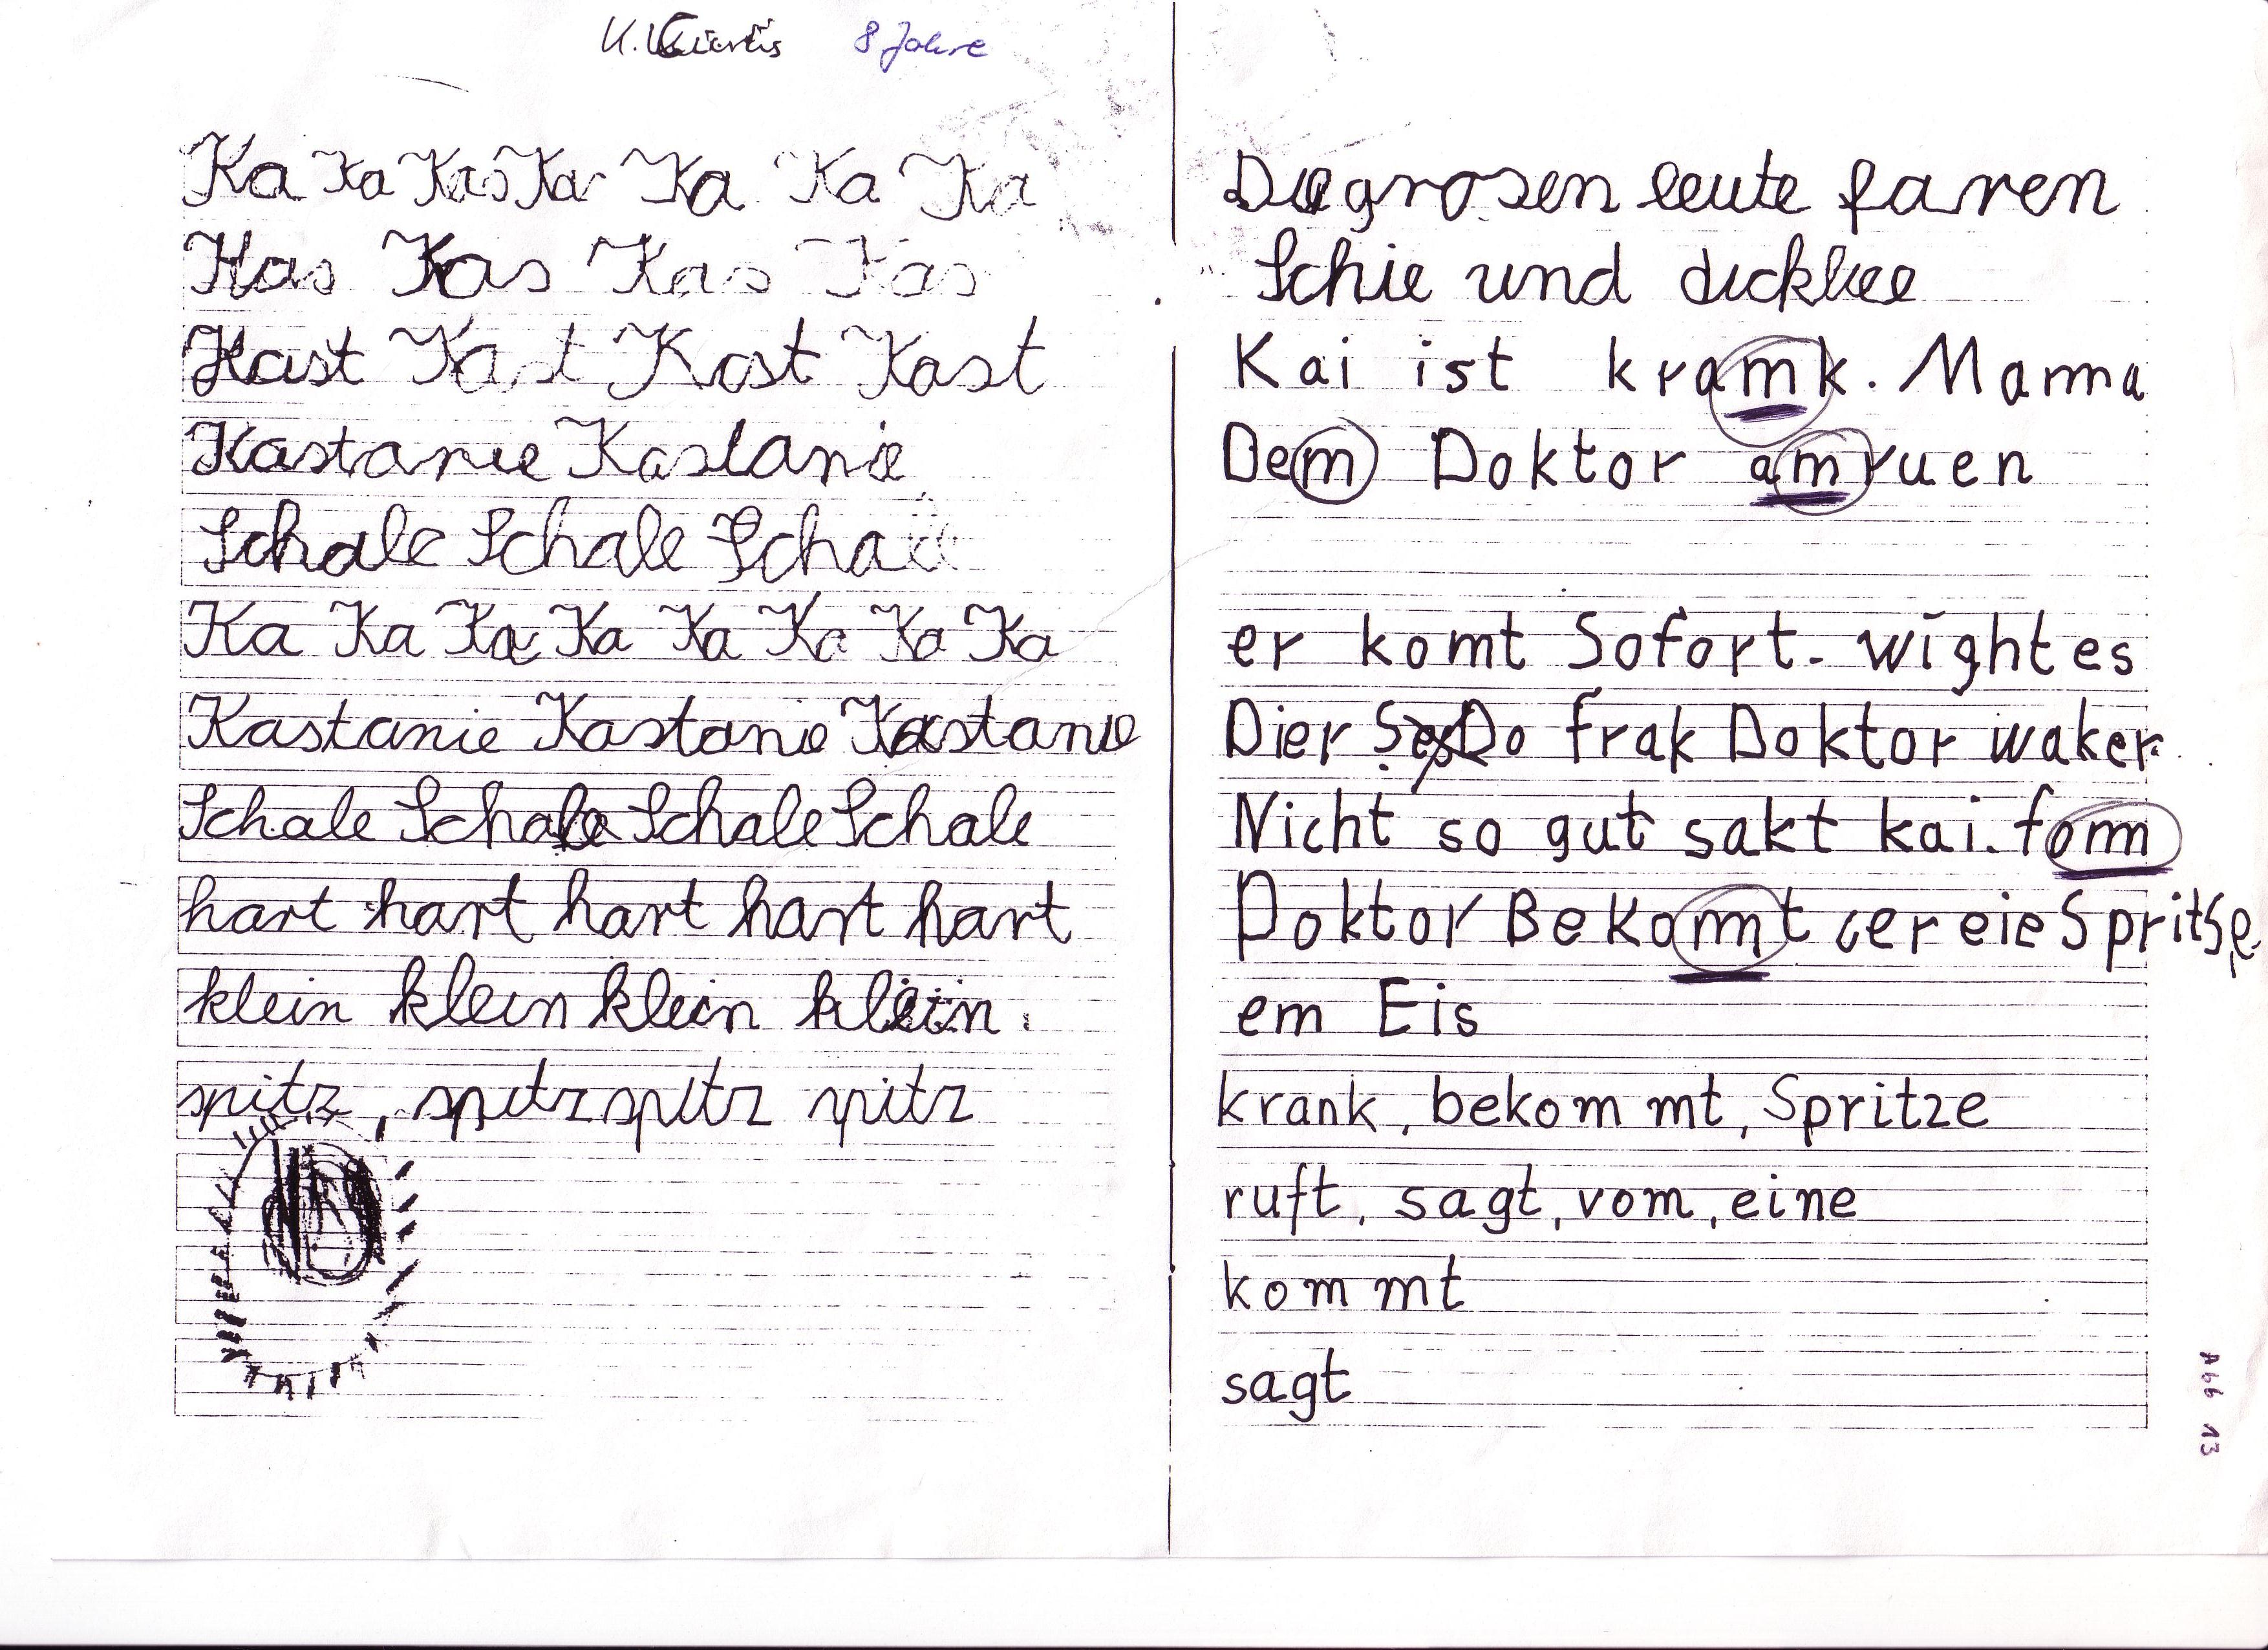 8 Jahre
Ka Ka Kas Ka Ka Ka Ka
Kas Kas Kas Kas
Kast Kast Kast Kast
Kastanie Kastanie
Schale Schale Schale
Ka Ka Ka Ka Ka Ka Ka Ka
Kastanie Kastanie Kastanie
Schale Schale Schale Schale
hart hart hart hart hart
klein klein klein klein.
spitz, spitz spitz spitz
Die grosen leute faren
Schie und
Kai ist kramk. Mamma
Dem Doktor amruen
er komt Sofort. wightes
Dier Do frak Doktor waker.
Nicht so gut sakt kai. fom
Doktor Bekomt er eie Spritse.
em Eis
krank, bekommt, Spritze
ruft, sagt, vom, eine
kommt
sagt
Abb 13